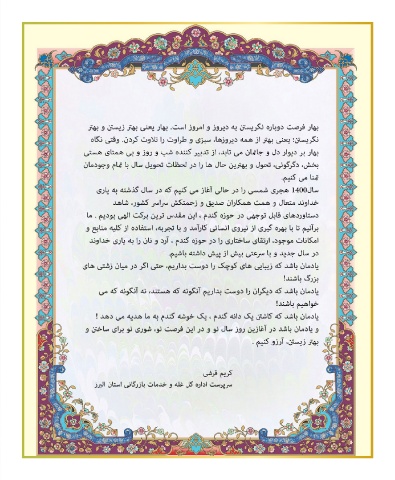 بهار فرصت دوباره نگریستن به دیروز و امروز است. بهار یعنی بهتر زیستن و بهتر
نگریستن؛ یعنی بهتر از همه دیروزها، سبزی و طراوت را تلاوت کردن. وقتی نگاه
بهار بر دیوار دل و جانمان می تابد، از تدبیر کننده شب و روز و بی همتای هستی
بخش، دگرگونی، تحول و بهترین حال ها را در لحظات تحویل سال با تمام وجودمان
تمنا می کنیم.
سال1400 هجری شمسی را در حالی آغاز می کنیم که در سال گذشته به یاری
خداوند متعال و همت همکاران صدیق و زحمتکش سراسر کشور، شاهد
دستاوردهای قابل توجهی در حوزه گندم ، این مقدس ترین برکت الهی بودیم . ما
برآنیم تا با بهره گیری از نیروی انسانی کارآمد و با تجربه، استفاده از کلیه منابع و
امکانات موجود، ارتقای ساختاری را در حوزه گندم ، آرد و نان را به یاری خداوند
در سال جدید و با سرعتی بیش از پیش داشته باشیم.
یادمان باشد که زیبایی های کوچک را دوست بداریم، حتی اگر در میان زشتی های
بزرگ باشند!
یادمان باشد که دیگران را دوست بداریم آنگونه که هستند، نه آنگونه که می
خواهیم باشند!
یادمان باشد که کاشتن یک دانه گندم ، یک خوشه گندم به ما هدیه می دهد !
و یادمان باشد در آغازین روز سال نو و در این فرصت نو، شوری نو برای ساختن و
بهتر زیستن، آرزو کنیم .
کریم قرشی
سرپرست اداره کل غله و خدمات بازرگانی استان البرز